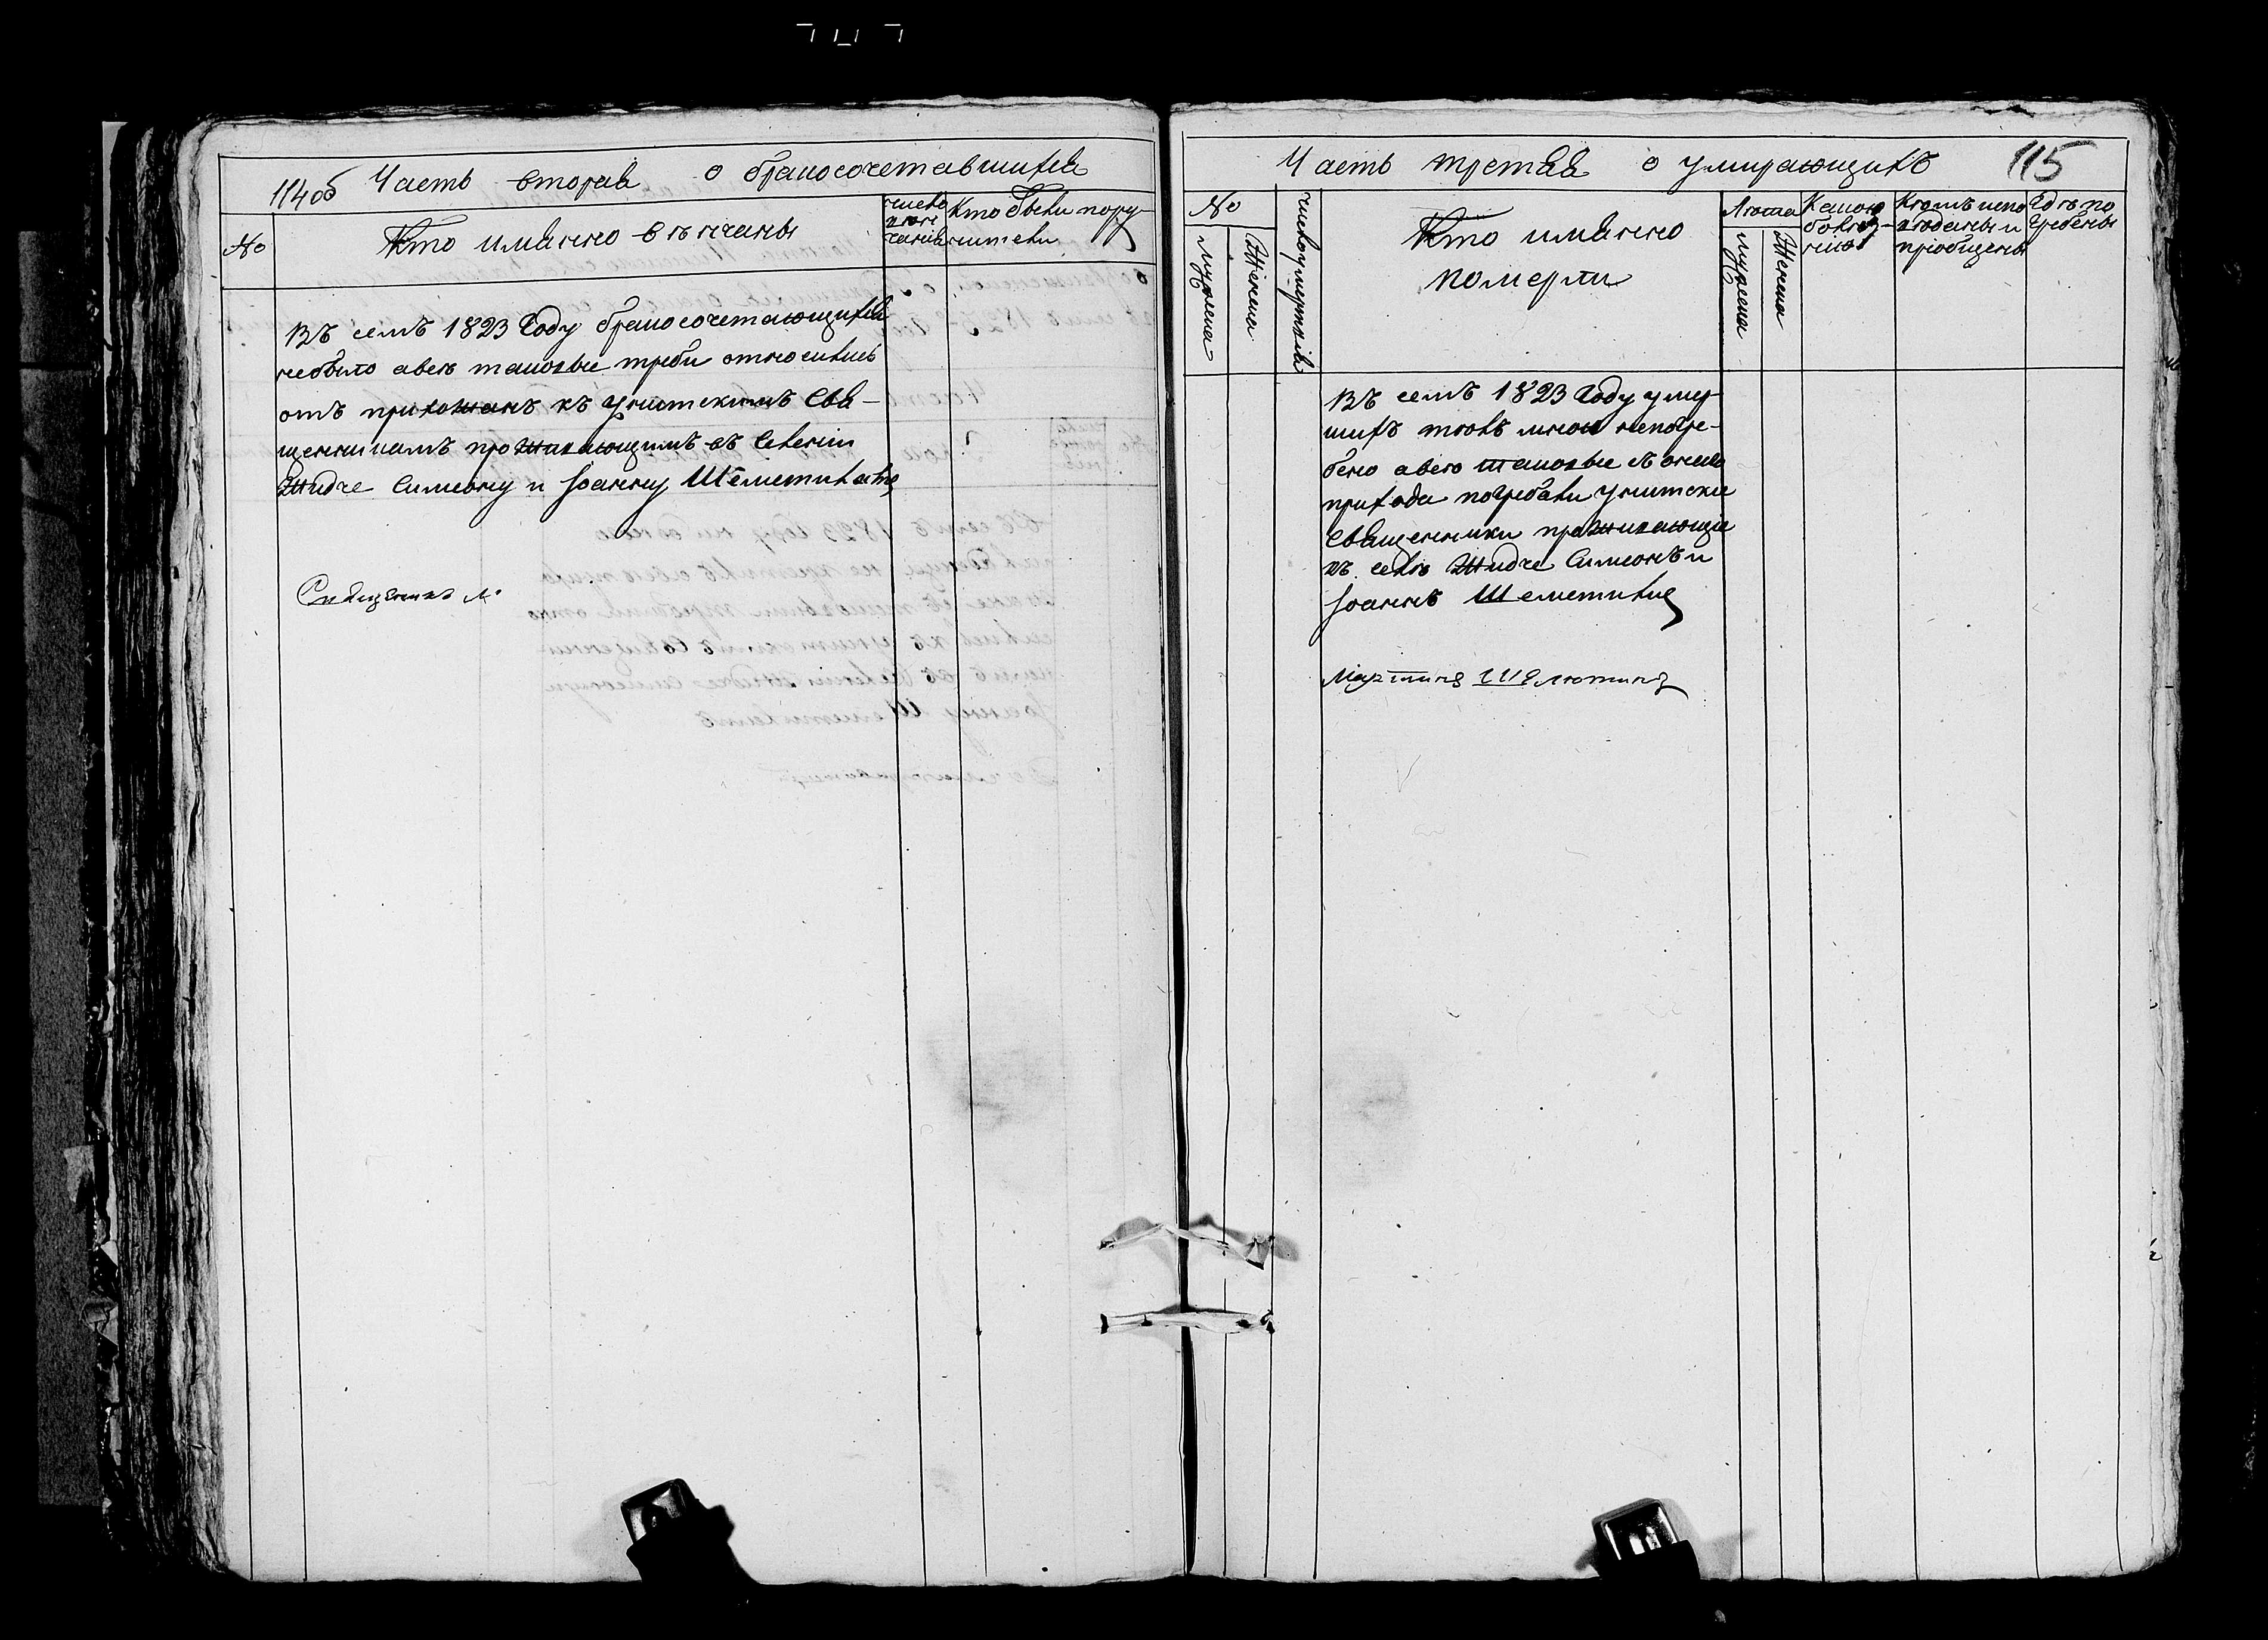 114об Часть вторая о бракосочетавшихся
№
Кто имянно венчаны
число
вен
чания
Кто были пору-
чители
Въ семъ 1823 Году бракосочетающихся
небыло авсе таковые требы относились
отъ прихожанъ къ Униатскимъ Свя-
щенникамъ проживающимъ въ селении
Жидче Симеону и Иоанну Шеметилам
Священникъ
Часть третяя о умирающихъ 115
№
мужеска
Женска
число умертвия
Кто имянно
померли
Лета
мужеска
Женска
Какою
болез-
нию
Кемъ испо
ведованы и
приобщены
Где по
гребены
Въ семъ 1823 Году умер-
шихъ мною непогре-
бено авсе таковые
прихода погребали Униатские
Священники проживающие
въ селе Жидче Симеонъ и
Иоаннъ Шеметилы